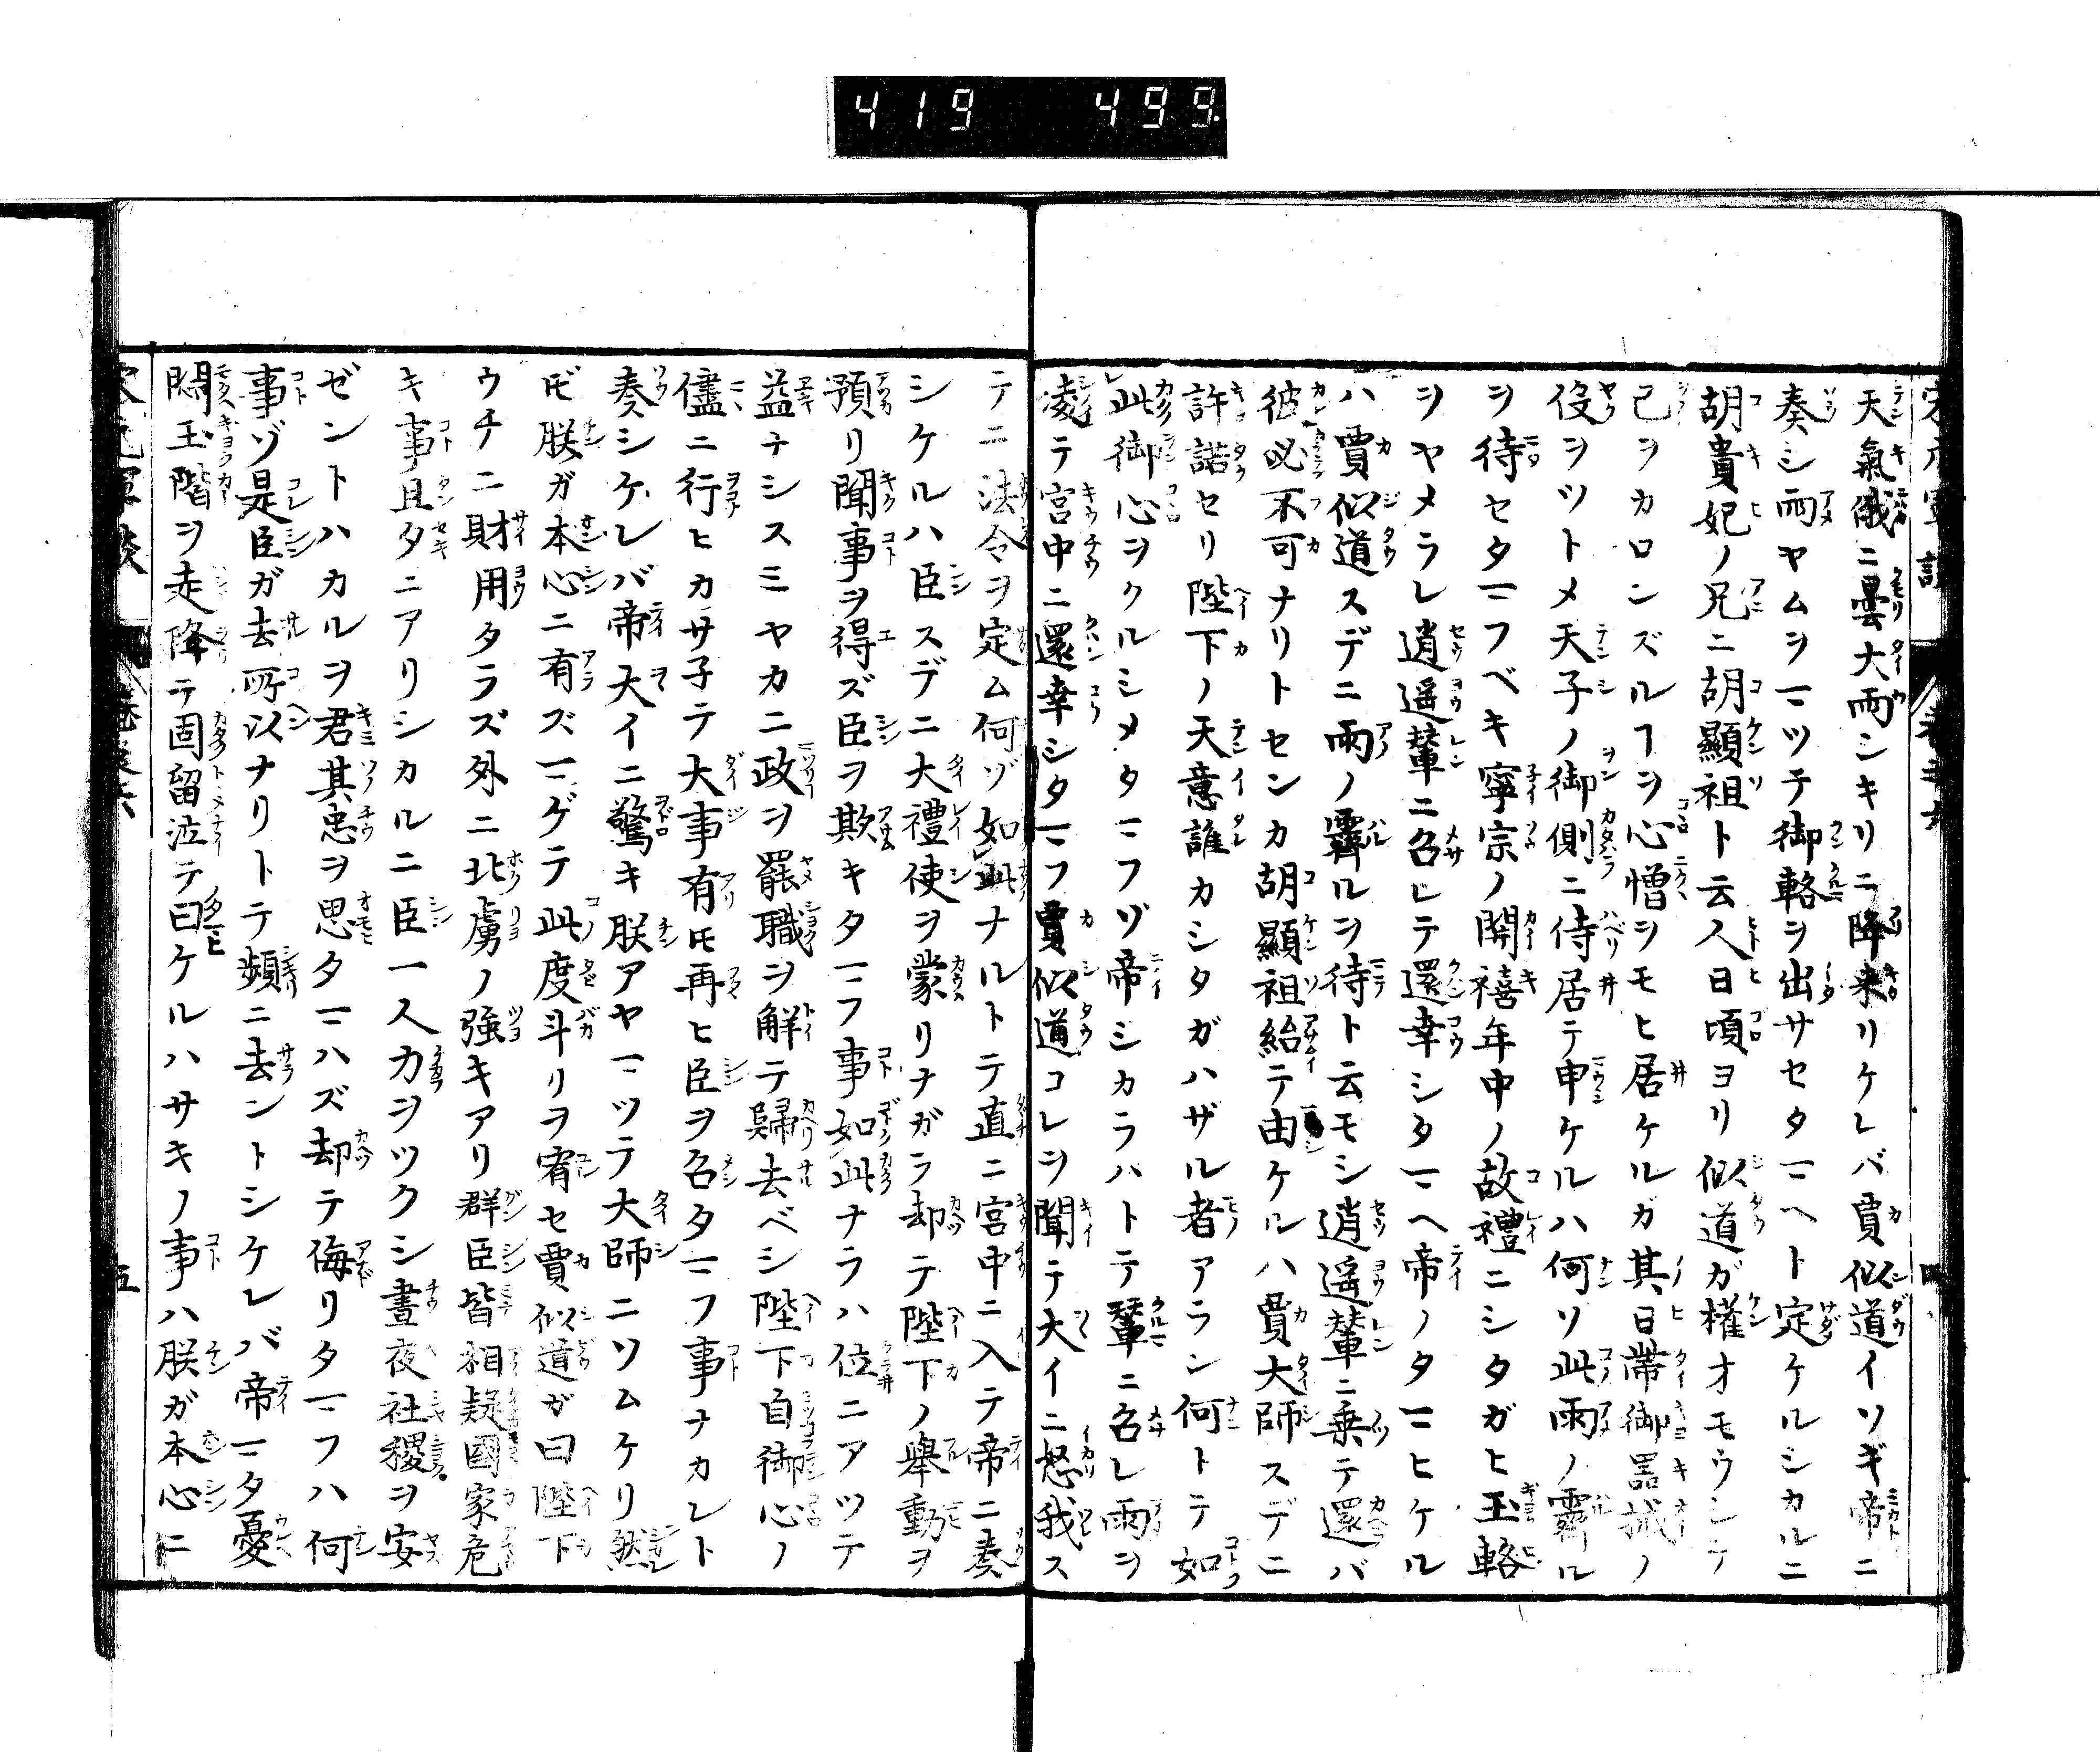 419 499
天氣俄ニ曇大雨シキリニ降來リケレバ賈似道イソギ帝ニ
奏シ雨ヤムヲマツテ御輅ヲ出サセタマヘト定ケルシカルニ
胡貴妃ノ兄ニ胡顯祖ト云人日頃ヨリ似道ガ權オモウシテ
己ヲカロンズルヿヲ心憎ヲモヒ居ケルガ其日帶御噐械ノ
役ヲツトメ天子ノ御側ニ侍居テ申ケルハ何ソ此雨ノ霽ル
ヲ待セタマフベキ寧宗ノ開禧年中ノ故禮ニシタガヒ玉輅
ヲヤメラレ逍遥輦ニ召レテ還幸シタマヘ帝ノタマヒケル
ハ賈似道スデニ雨ノ霽ルヲ待ト云モシ逍遥輦ニ乗テ還バ
彼必不可ナリトセンカ胡顯祖紿テ由ケルハ賈大師スデニ
許諾セリ陛下ノ天意誰カシタガハザル者アラン何トテ如
此御心ヲクルシメタマフゾ帝シカラバトテ輦ニ召レ雨ヲ
凌テ宮中ニ還幸シタマフ賈似道コレヲ聞テ大イニ怒我ス
テニ法令ヲ定ム何ゾ如此ナルトテ直ニ宮中ニ入テ帝ニ奏
シケルハ臣スデニ大禮使ヲ蒙リナガラ却テ陛下ノ舉動ヲ
預リ聞事ヲ得ズ臣ヲ欺キタマフ事如此ナラハ位ニアツテ
益ナシスミヤカニ政ヲ罷職ヲ解テ歸去ベシ陛下自御心ノ
儘ニ行ヒカサ子テ大事有圧再ヒ臣ヲ召タマフ事ナカレト
奏シケレバ帝大イニ驚キ朕アヤマツテ大師ニソムケリ然
圧朕ガ本心ニ有ズマゲテ此度斗リヲ宥セ賈似道ガ曰陛下
ウチニ財用タラズ外ニ北虜ノ強キアリ群臣皆相疑國家危
キ事且タニアリシカルニ臣一人力ヲツクシ晝夜社稷ヲ安
ゼントハカルヲ君其忠ヲ思タマハズ却テ侮リタマフハ何
事ゾ是臣ガ去所以ナリトテ頻ニ去ントシケレバ帝マタ憂
悶玉階ヲ走降テ固留泣テ曰ケルハサキノ事ハ朕ガ本心ニ
五